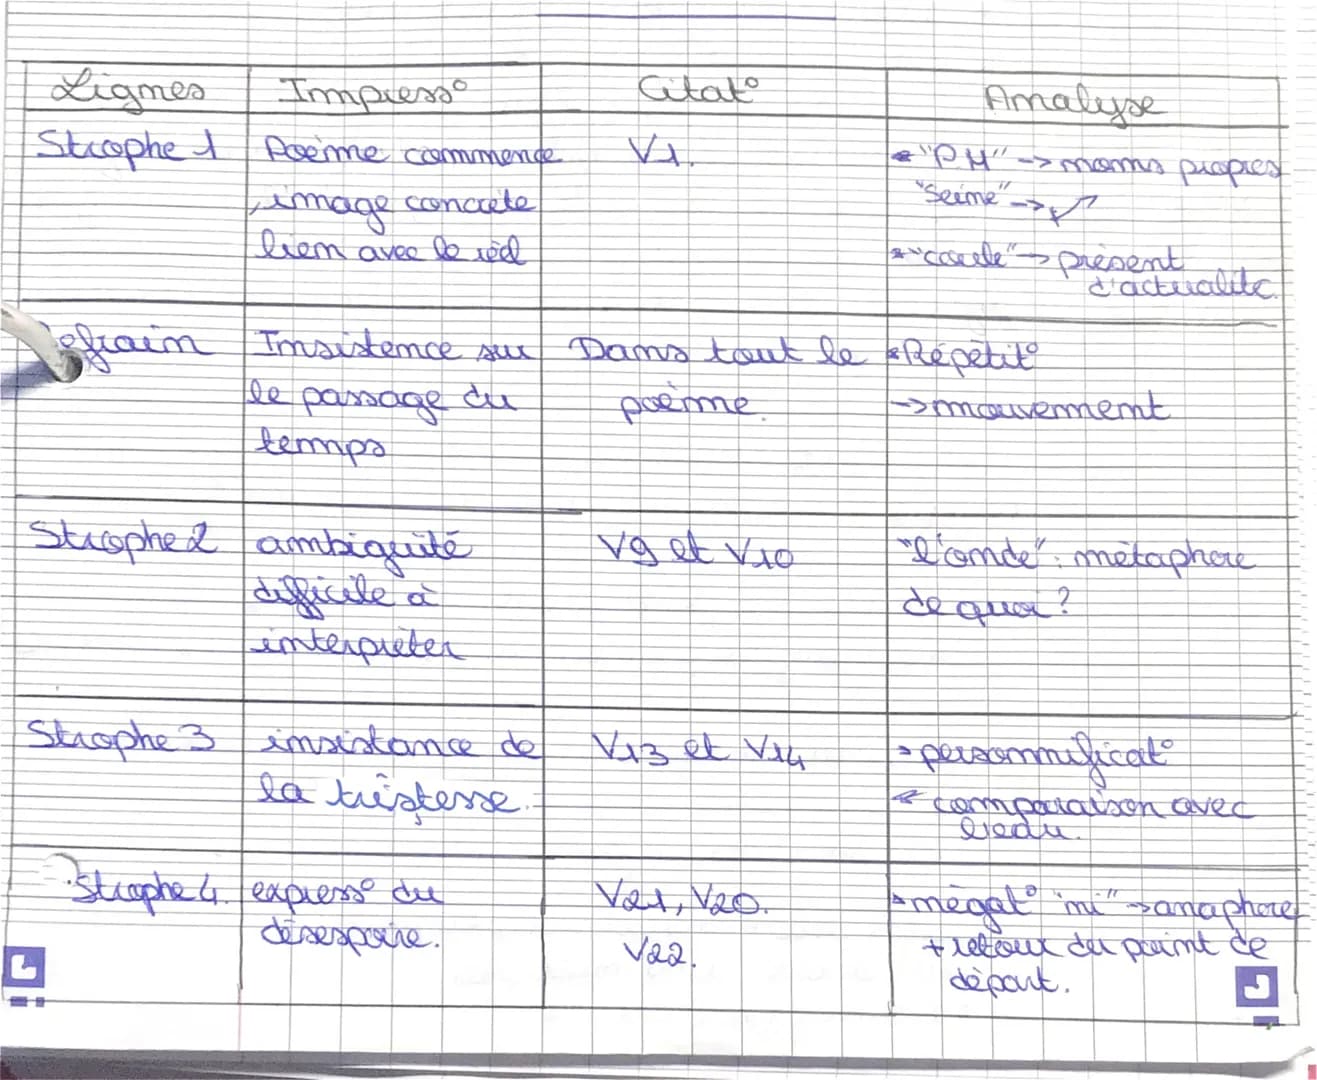 Lignes Impress° Citat° Analyse
Strophe 1 Poème commence V1. * "PM" -> noms propres
image concrète "Seine" ->
lien avec le réel * "coule" -> présent
d'actualité.
Refrain Insistence sur Dans tout le * Répétit°
le passage du poème. -> mouvement
temps
Strophe 2 ambiguité V9 et V10 "l'onde" : métaphore
difficile à de quoi ?
interpréter
Strophe 3 insistance de V13 et V14 personnificat°
la tristesse. * comparaison avec
l'eau.
Strophe 4. express° du V21, V20. négat° "ni" -> anaphore
désespoire. V22. + retour du point de
départ.